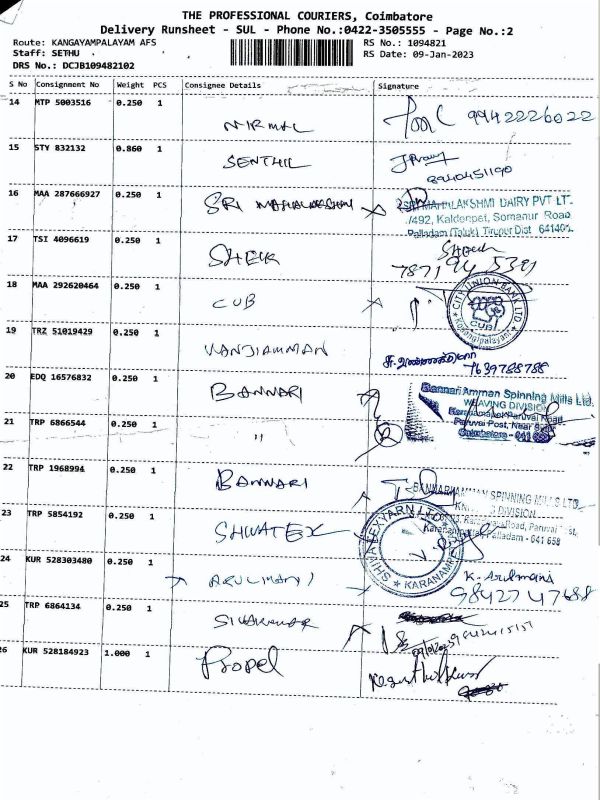 THE PROFESSIONAL COURIERS, Coimbatore
Delivery Runsheet - SUL - Phone No.:0422-3505555 - Page No.:2
Route: KANGAYAMPALAYAM AFS RS No.: 1094821
Staff: SETHU RS Date: 09-Jan-2023
DRS No.: DCJB109482102
S No Consignment No Weight PCS Consignee Details Signature
14 MTP 5003516 0.250 1
NIRMAL 9942226022
15 STY 832132 0.860 1
SENTHIL
16 MAA 287666927 0.250 1
SRI MAHALAKSHMI
SRI MAHALAKSHMI DAIRY PVT LT
/492, Kaldonpet, Somanur Road
Palladam (Taluk) Tirupur Dist 641401
17 TSI 4096619 0.250 1
SHEIK
18 MAA 292620464 0.250 1
CUB
CITY UNION BANK LTD.
CUB
19 TRZ 51019429 0.250 1
VANJIAMMAN
7639788788
20 EDQ 16576832 0.250 1
BANNARI
Bannari Amman Spinning Mills Ltd.
WEAVING DIVISION
Paruvai Road
Paruvai Post, Near
Coimbatore - 641 658
21 TRP 6866544 0.250 1
"
22 TRP 1968994 0.250 1
BANNARI
BANNARI AMMAN SPINNING MILLS LTD
DIVISION
Road, Paruvai
Palladam - 641 658
23 TRP 5854192 0.250 1
SHWATEX
SHIVATEX YARN LTD
KARANAM
24 KUR 528303480 0.250 1
ARULMANI
K. Arulmani
9842747688
25 TRP 6864134 0.250 1
SIVAKUMAR
26 KUR 528184923 1.000 1
Propel